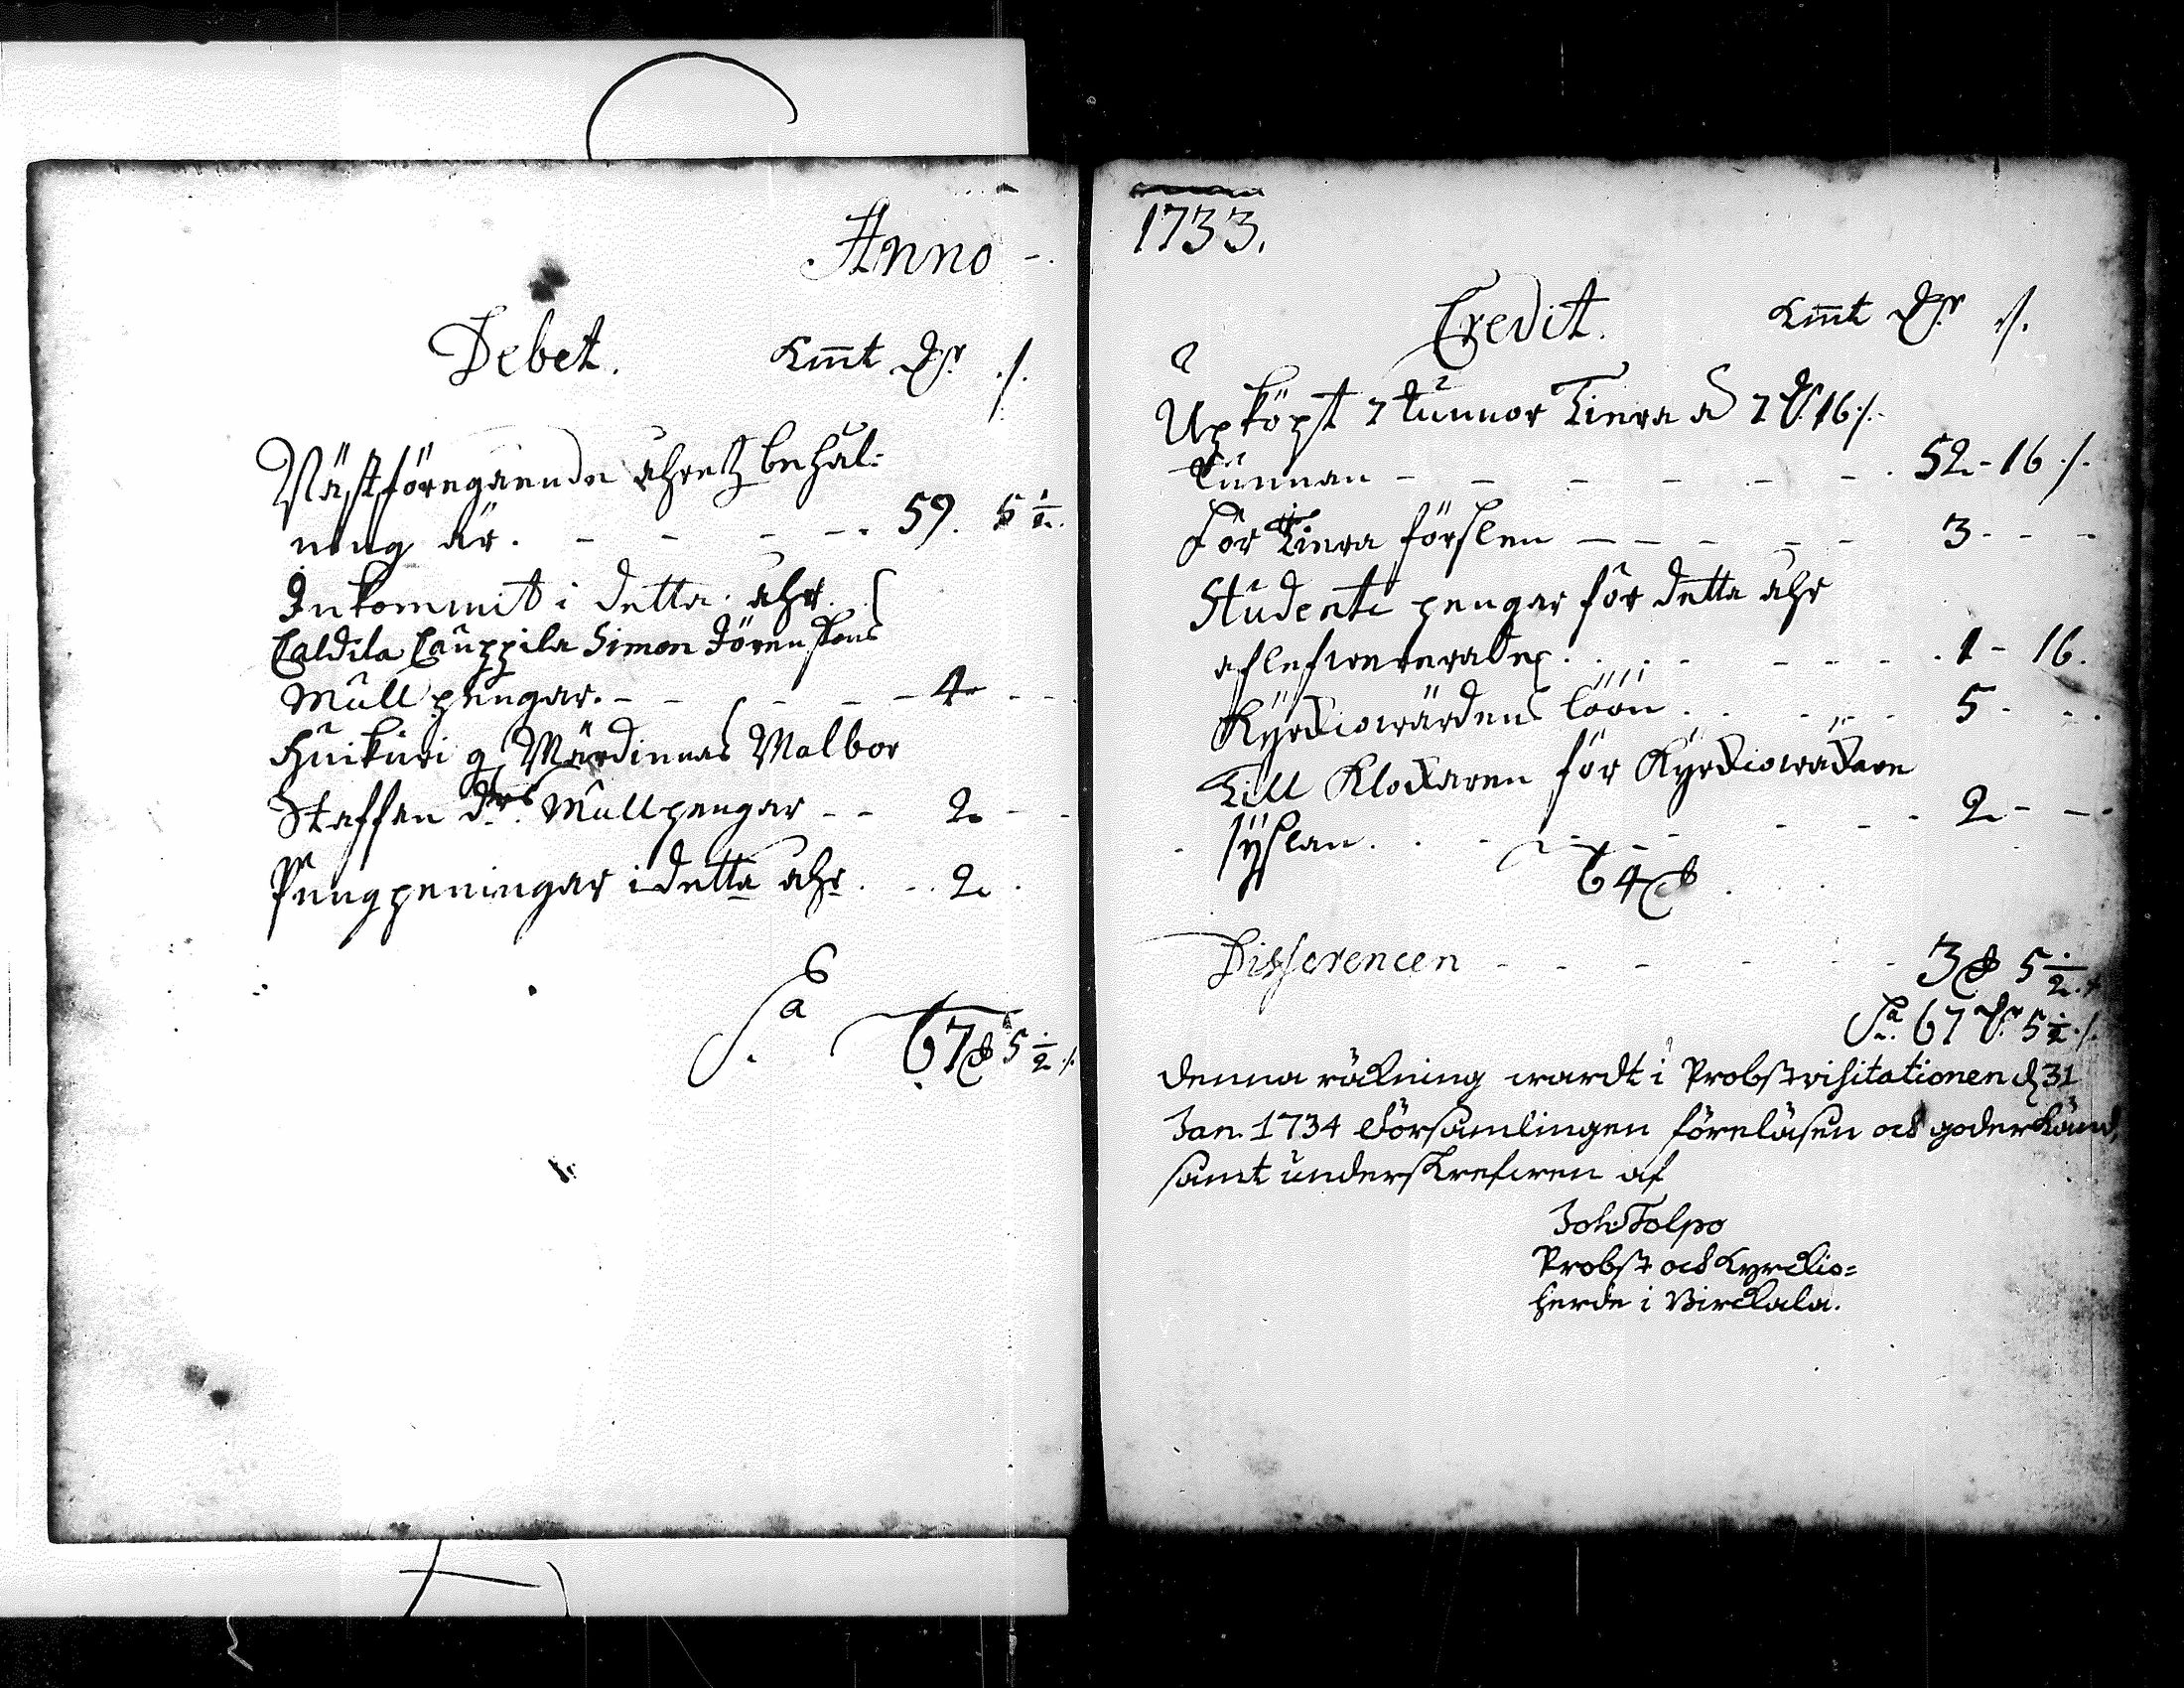 Anno -.
Debet. Kmt Dr ./.
Nästföregåendn åhretz behål=
ning är. - - - -. 59. 5 1/2.
Inkommit i detta åhr.
Caldila Cauppila Simon Jörenssons
Mull pengar. - - - - 4 - -
Huikuri q Mårdinnas Malbor
Staffan drs Mullpengar - - 2 - -
Pungpeningar i detta åhr. - . 2 .
Sa 67 D 5 1/2 ./.
1733.
Credit. Kmt Dr ./.
Upköpt 7 tunnor Tiera a 7 D. 16 ./.
tunnan - - - - - - . 52 - 16 ./.
För Tiera förslen - - - - - 3 - - -
Studente pengar för detta åhr
aflefwererades . . . - - - - . 1 - 16.
Kyrckiowärdens löön . . - . - 5 - - .
Till Klockaren för Kyrckiowäckare
syslan. . - - - - - - . 2 - - -
64 D .
Differencen - - - - - - 3 D 5 1/2 ./.
Sa. 67 D. 5 1/2 ./.
Denna räkning wardt i Probstvisitationen d 31
Jan. 1734 Församlingen föreläsen och goderkänd,
samt underskrefwen af
Joh: Tolpo
Probst och Kyrckio=
herde i Birckala.